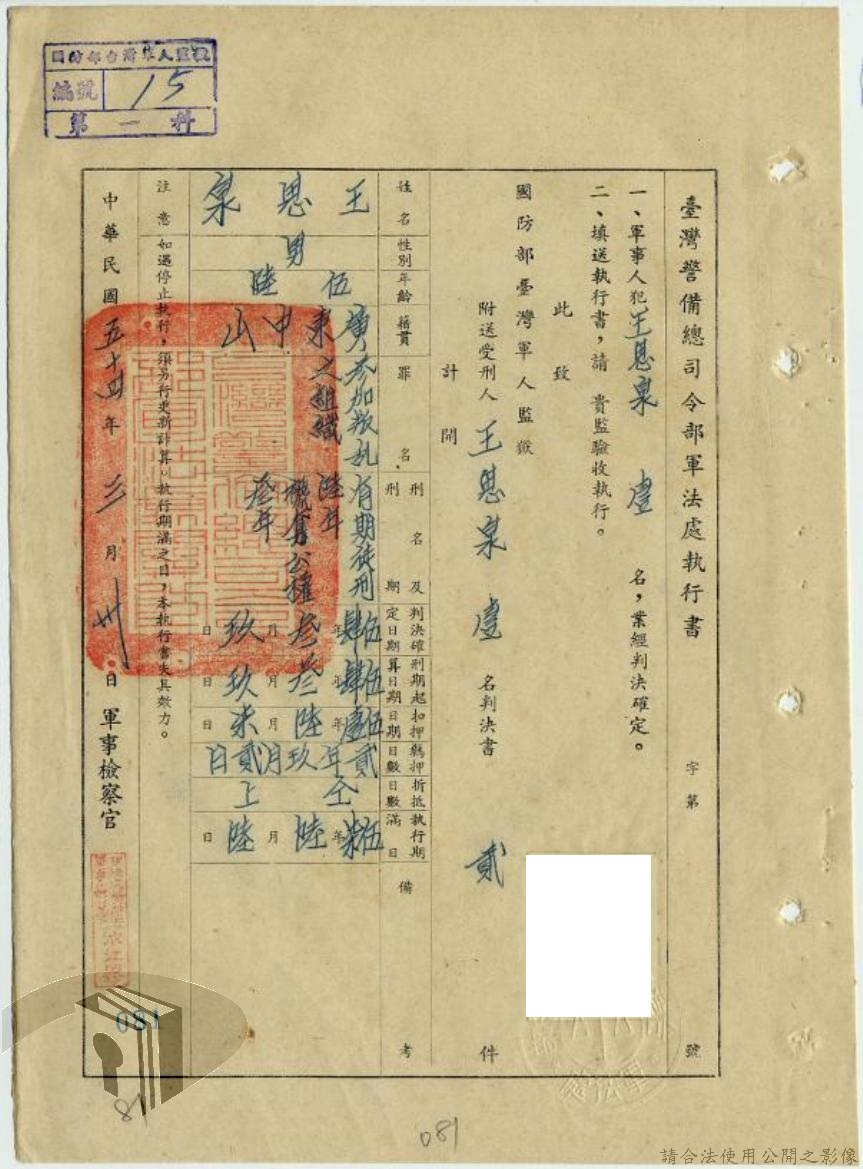 國防部台灣軍人監獄
編號 15
第一科
臺灣警備總司令部軍法處執行書 字第 號
一、軍事人犯王思泉 壹 名,業經判決確定。
二、填送執行書,請 貴監驗收執行。
此致
國防部臺灣軍人監獄
附送受刑人 王思泉 壹 名判決書 貳 件
計開
姓名 性別 年齡 籍貫 罪名 刑名及刑期 判決確定日期 刑期起算日期 扣押日期 羈押日數 折抵日數 執行期滿日 備考
王思泉
男
伍陸
廣東中山
參加叛乱之組織
有期徒刑陸年褫奪公權叁年
伍肆年叁月玖日
伍肆年叁月玖日
伍壹年陸月柒日
貳年玖月貳日
仝上
伍柒年陸月陸日
注意 如遇停止執行,須另行更新計算。執行期滿之日,本執行書失其效力。
中華民國五十四年三月卅日 軍事檢察官
081
81
081
請合法使用公開之影像